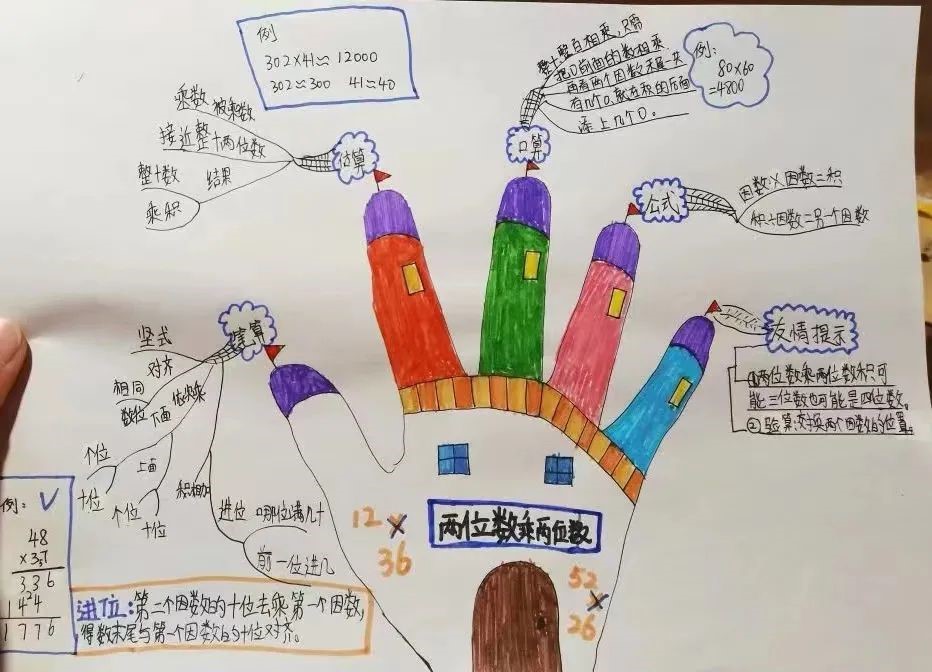 例
302×41≈12000
302≈300 41≈40
乘数 被乘数
接近整十两位数
整十数 结果
乘积
估算
整十整百相乘,只需
把0前面的数相乘
再看两个因数末尾一共
有几个0,就在积的后面
添上几个0。
例:
80×60
=4800
口算
公式
因数×因数=积
积÷因数=另一个因数
友情提示
①两位数乘两位数积可
能三位数也可能是四位数。
②验算:交换两个因数的位置。
笔算
竖式
对齐
相同
数位 下面 依次乘
个位
十位
上面
个位
十位
积相加
进位 哪位满几十
前一位进几
例: √
48
×37
336
144
1776
进位:第二个因数的十位去乘第一个因数,
得数末尾与第一个因数的十位对齐。
两位数乘两位数
12
×
36
52
×
26